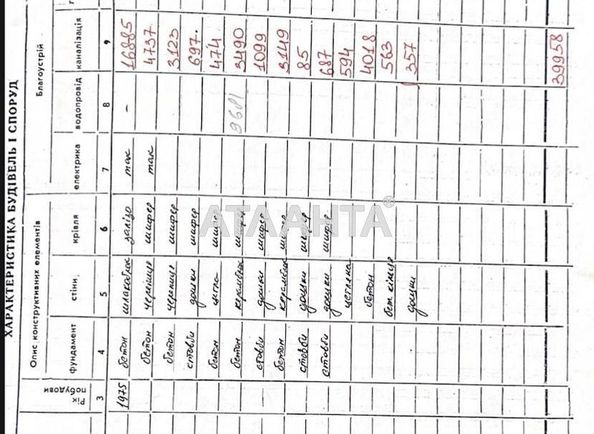 ХАРАКТЕРИСТИКА БУДІВЕЛЬ І СПОРУД
Рік побудови
Опис конструктивних елементів
Благоустрій
фундамент
стіни
крівля
електрика
водопровід
каналізація
3 4 5 6 7 8 9
1975 бетон шлакоблок залізо так – 16885
бетон черепаш шифер так 4737
бетон черепаш шифер 3123
стовби дошки шифер 697
бетон цегла шифер 474
бетон керамблок шифер 3490
стовби дошки шифер 1099
бетон керамблок шифер 3149
стовби дошки шифер 85
стовби дошки шифер 687
цегляна 594
бетон 4018
563
дошки 357
39958
АТЛАНТА